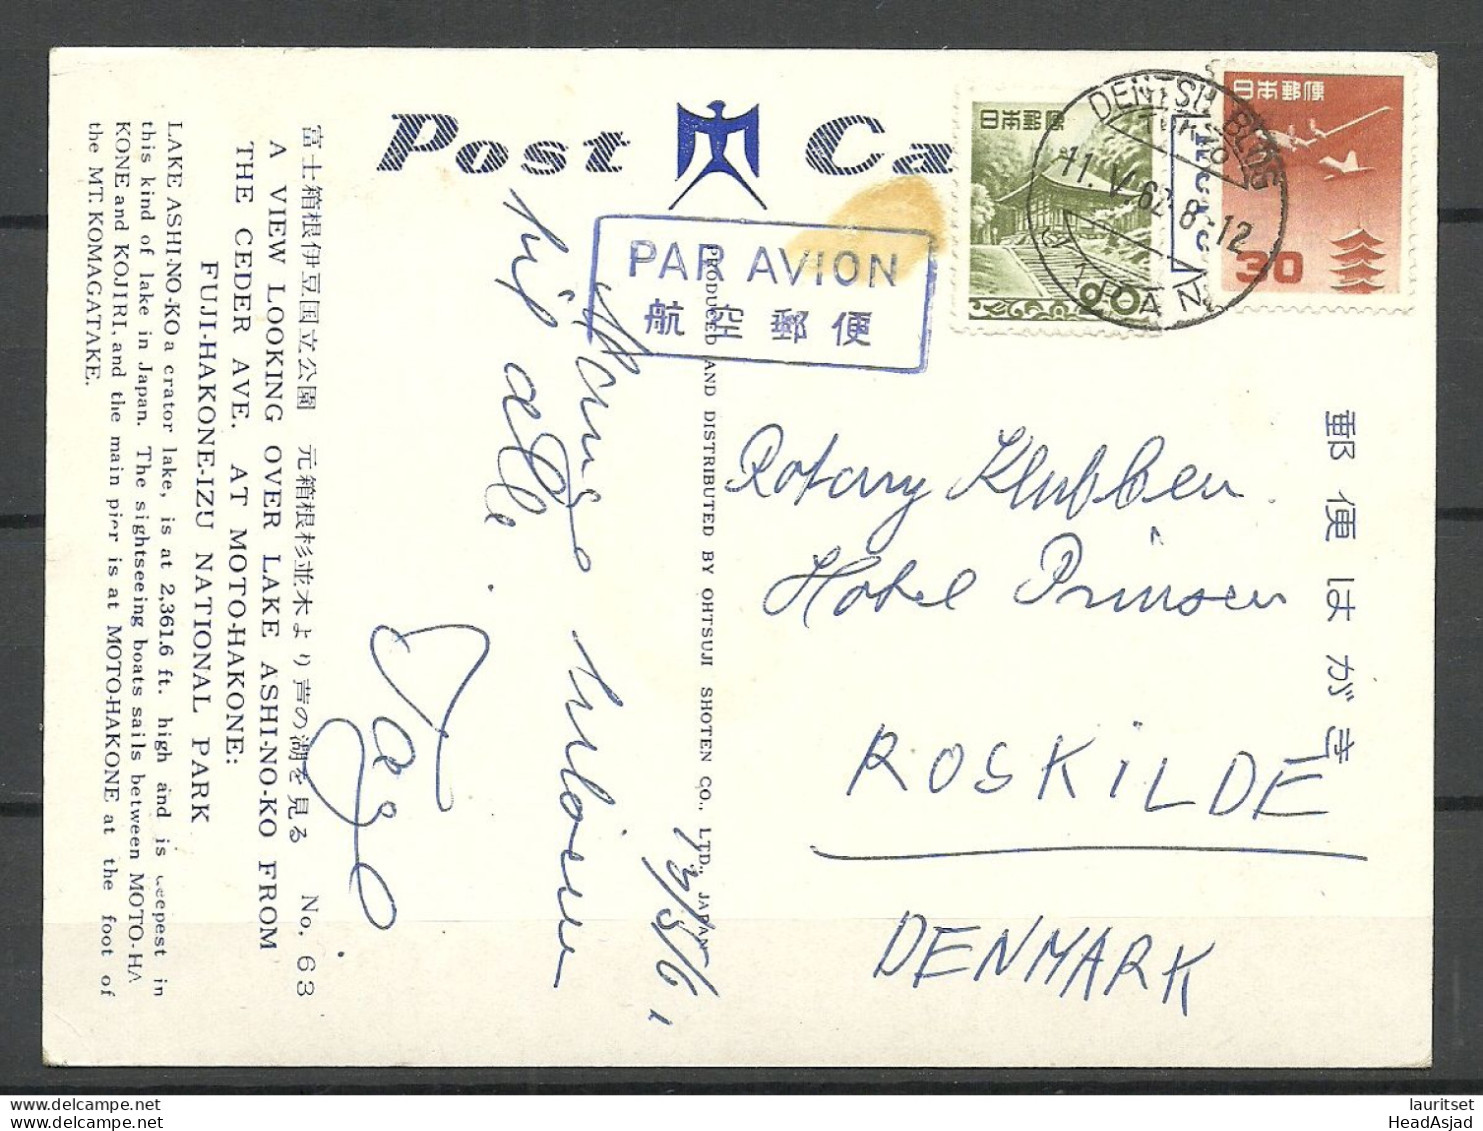 Post Ca
日本郵便
日本郵便
30
DENTSU BLDG
TOKYO
11. V. 62. 8-12
JAPAN
PAR AVION
航空郵便
郵便はがき
Rotary Klubben
Hotel Prinsen
ROSKILDE
DENMARK
hils alle.
13/5/61
PRODUCED AND DISTRIBUTED BY OHTSUJI SHOTEN CO., LTD., JAPAN
富士箱根伊豆国立公園 元箱根杉並木より芦の湖を見る No. 63
A VIEW LOOKING OVER LAKE ASHI-NO-KO FROM
THE CEDER AVE. AT MOTO-HAKONE:
FUJI-HAKONE-IZU NATIONAL PARK
LAKE ASHI-NO-KO a crator lake, is at 2,361.6 ft. high and is deepest in
this kind of lake in Japan. The sightseeing boats sails between MOTO-HA
KONE and KOJIRI, and the main pier is at MOTO-HAKONE at the foot of
the MT. KOMAGATAKE.
www.delcampe.net
www.delcampe.net
lauritset
HeadAsjad